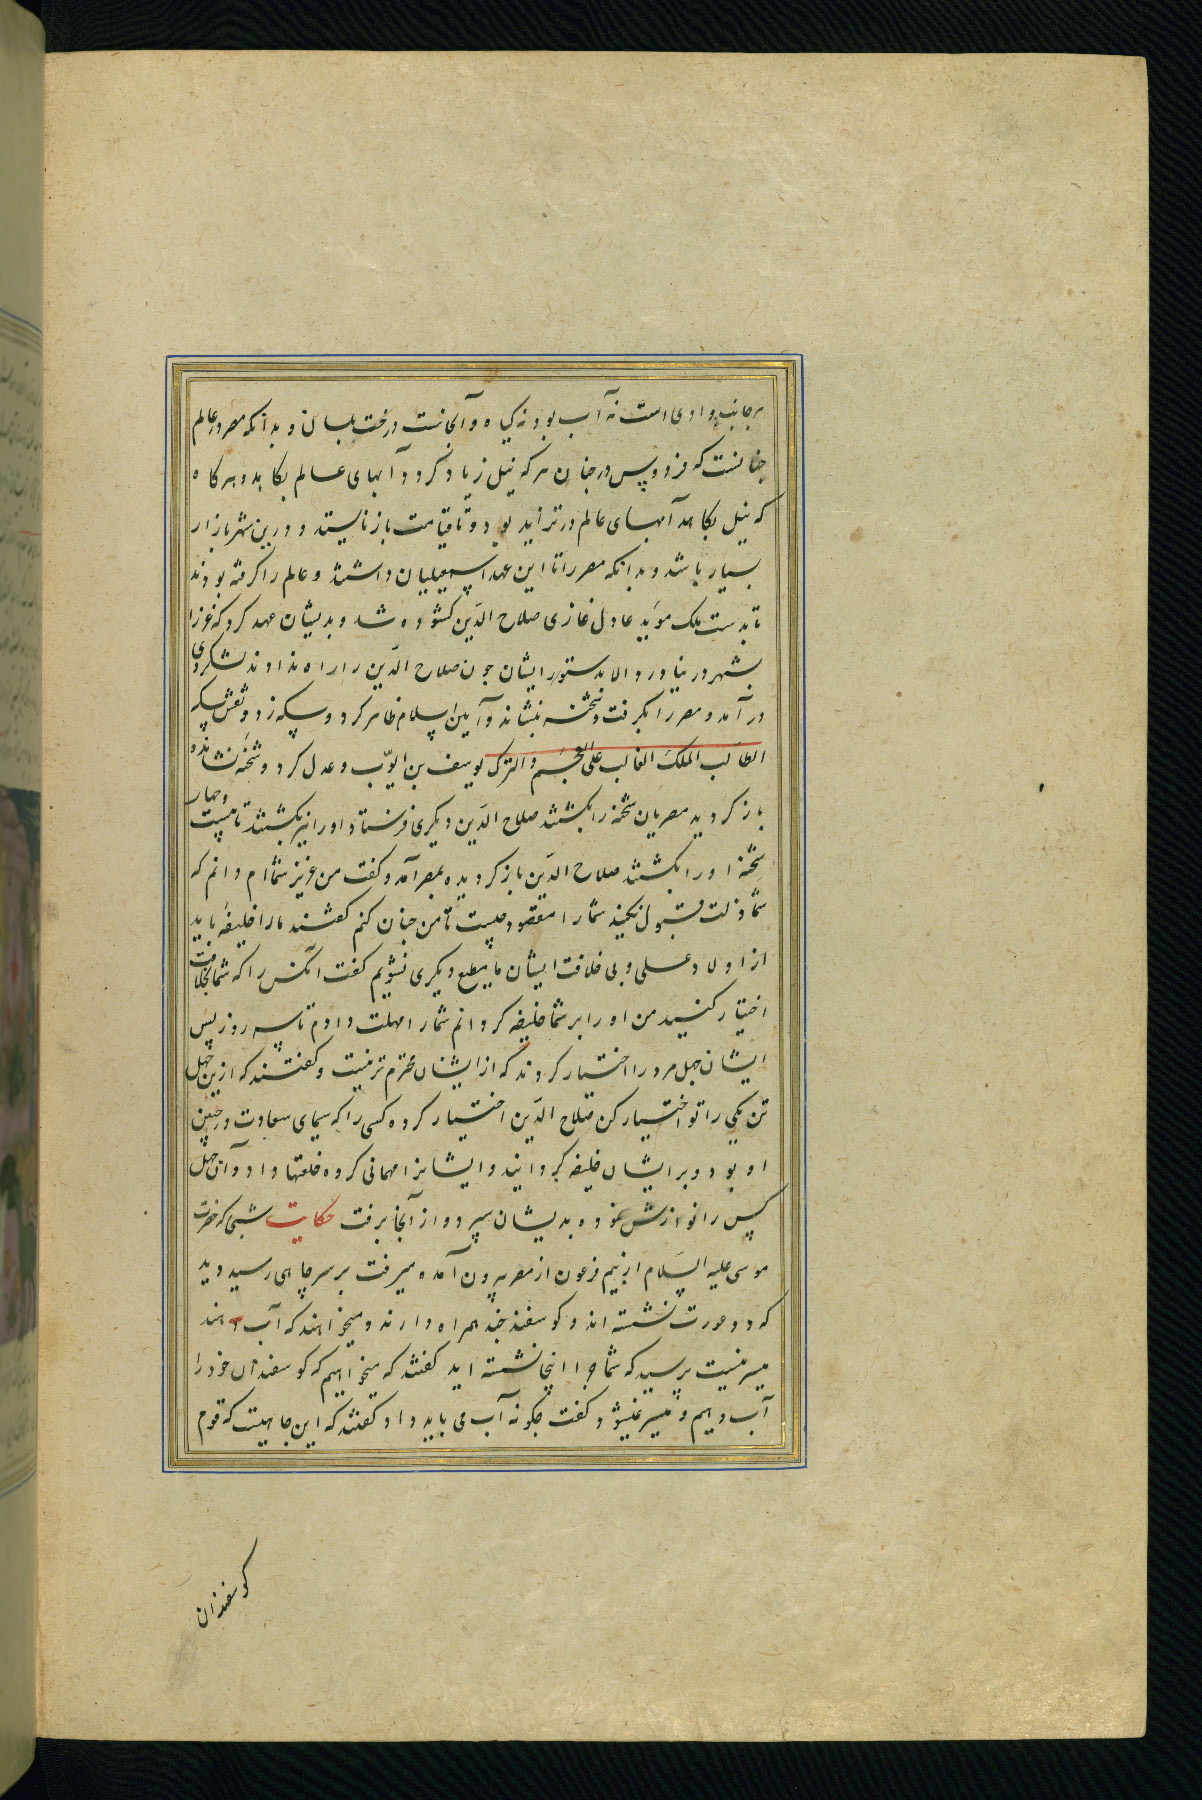 هر جانب وادی است نه آب بود نه گیاه و آنجاست درخت بلسان و بدانکه مصر در عالم
چنانست که فردوس در جنان هرکه نیل زیاد گردد آبهای عالم بکاهد و هر کاه
که نیل بکاهد آبهای عالم در تزاید بود و تا قیامت باز نایستد و درین شهر بازار
بسیار باشد و بدانکه مصر را تا این عهد اسمعیلیان داشتند و عالم را گرفته بودند
تا بدست ملک مؤید عادل غازی صلاح الدّین کشوده شد و بدیشان عهد کرد که غز را
بشهر در نیاورد الا بدستور ایشان چون صلاح الدّین را راه دادند لشکر وی
در آمد و مصر را بگرفت و شحنه بنشاند و آیین اسلام ظاهر کرد و سکه زد و نقش سکه
الطالب الملک الغالب علی العجم و الترک یوسف بن ایّوب و عدل کرد و شحنه نشاند و
باز کردید مصریان شحنه را بکشتند صلاح الدّین دیکری فرستاد او را نیز بکشتند تا بیست و چهار
شحنه او را بکشتند صلاح الدّین باز کردیده بمصر آمد و کفت من عزیز شماام دانم که
شما ذلت قبول نکنید شما را مقصود چیست تا من چنان کنم کفتند ما را خلیفه باید
از اولاد علی و بی خلافت ایشان ما مطیع دیکری نشویم کفت آنکس را که شما بخلافت
اختیار کنید من او را بر شما خلیفه کردانم شما را مهلت دادم تا سه روز پس
ایشان چهل مرد را اختیار کردند که از ایشان محترم تر نیست و کفتند که ازین چهل
تن یکی را تو اختیار کن صلاح الدّین اختیار کرده کسی را که سیمای سعادت در جبین
او بود و بر ایشان خلیفه کردانید و ایشانرا مهمانی کرده خلعتها داد و آن چهل
کس را نوازش نموده بدیشان سپرد و از آنجا برفت حکایت شبی که حضرت
موسی علیه السّلام از بیم فرعون از مصر بیرون آمده میرفت بر سر چاهی رسید دید
که دو عورت نشسته اند و کوسفند چند همراه دارند و میخواهند که آب دهند
میسر نیست پرسید که شما چرا اینجا نشسته اید کفتند که میخواهیم که کوسفندان خود را
آب دهیم و میسر نمیشود کفت چکونه آب می باید داد کفتند که این چاهیست که قوم
کوسفندان